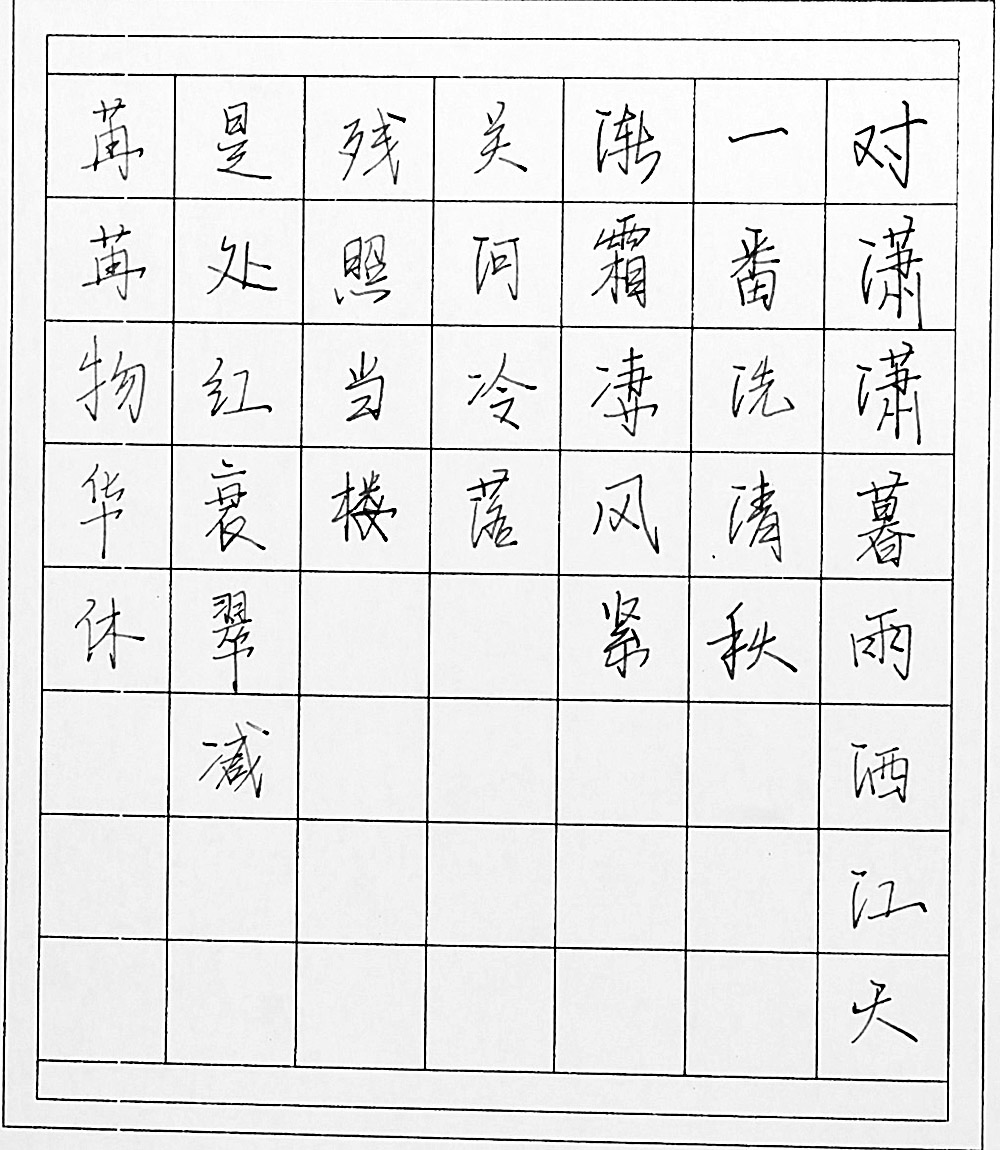 对潇潇暮雨洒江天
一番洗清秋
渐霜凄风紧
关河冷落
残照当楼
是处红衰翠减
苒苒物华休